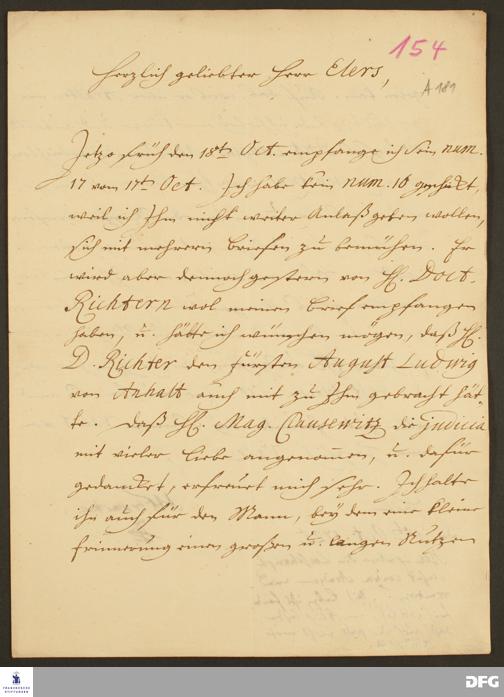 154
Herzlich geliebter Herr Elers,
A 181
Jetzo früh den 18ten Oct. empfange ich sein num.
17 vom 17ten Oct. Ich habe kein num. 16 geschickt,
weil ich Ihm nicht weiter Anlaß geben wollen,
sich mit mehrern briefen zu bemühen. Er
wird aber dennoch gestern von H. Doct.
Richtern wol meinen brief empfangen
haben, u. hätte ich wünschen mögen, daß H.
D. Richter den Fürsten August Ludwig
von Anhalt auch mit zu Ihm gebracht hät-
te. Daß H. Mag. Clausewitz die judicia
mit vieler Liebe angenommen, u. dafür
gedancket, erfreuet mich sehr. Ich halte
ihn auch für den Mann, bey dem eine kleine
Erinnerung einen großen u. langen Nutzen
FRANCKESCHE
STIFTUNGEN
DFG